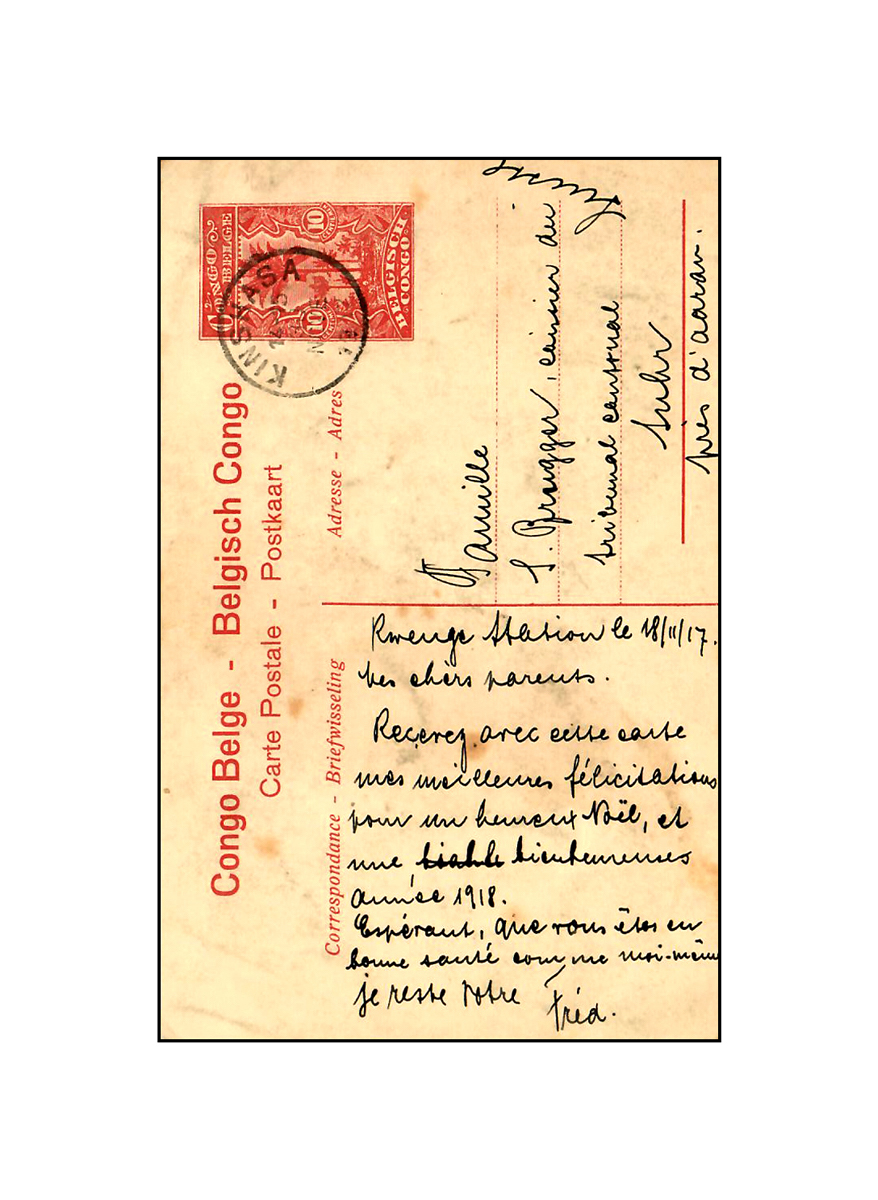 Congo Belge - Belgisch Congo
Carte Postale - Postkaart
CONGO BELGE
10
10
BELGISCH CONGO
KINSHASA
Correspondance - Briefwisseling
Adresse - Adres
Kwenge Station le 18/11/17.
Mes chèrs parents.
Recevez avec cette carte
mes meilleures félicitations
pour un heureux Noël, et
une bienheureuses
année 1918.
Espérant, que vous êtes en
bonne santé comme moi-même
je reste Votre
Fréd.
Famille
S. Brugger, caissier du
tribunal cantonal
Suhr
près d'Aarau.